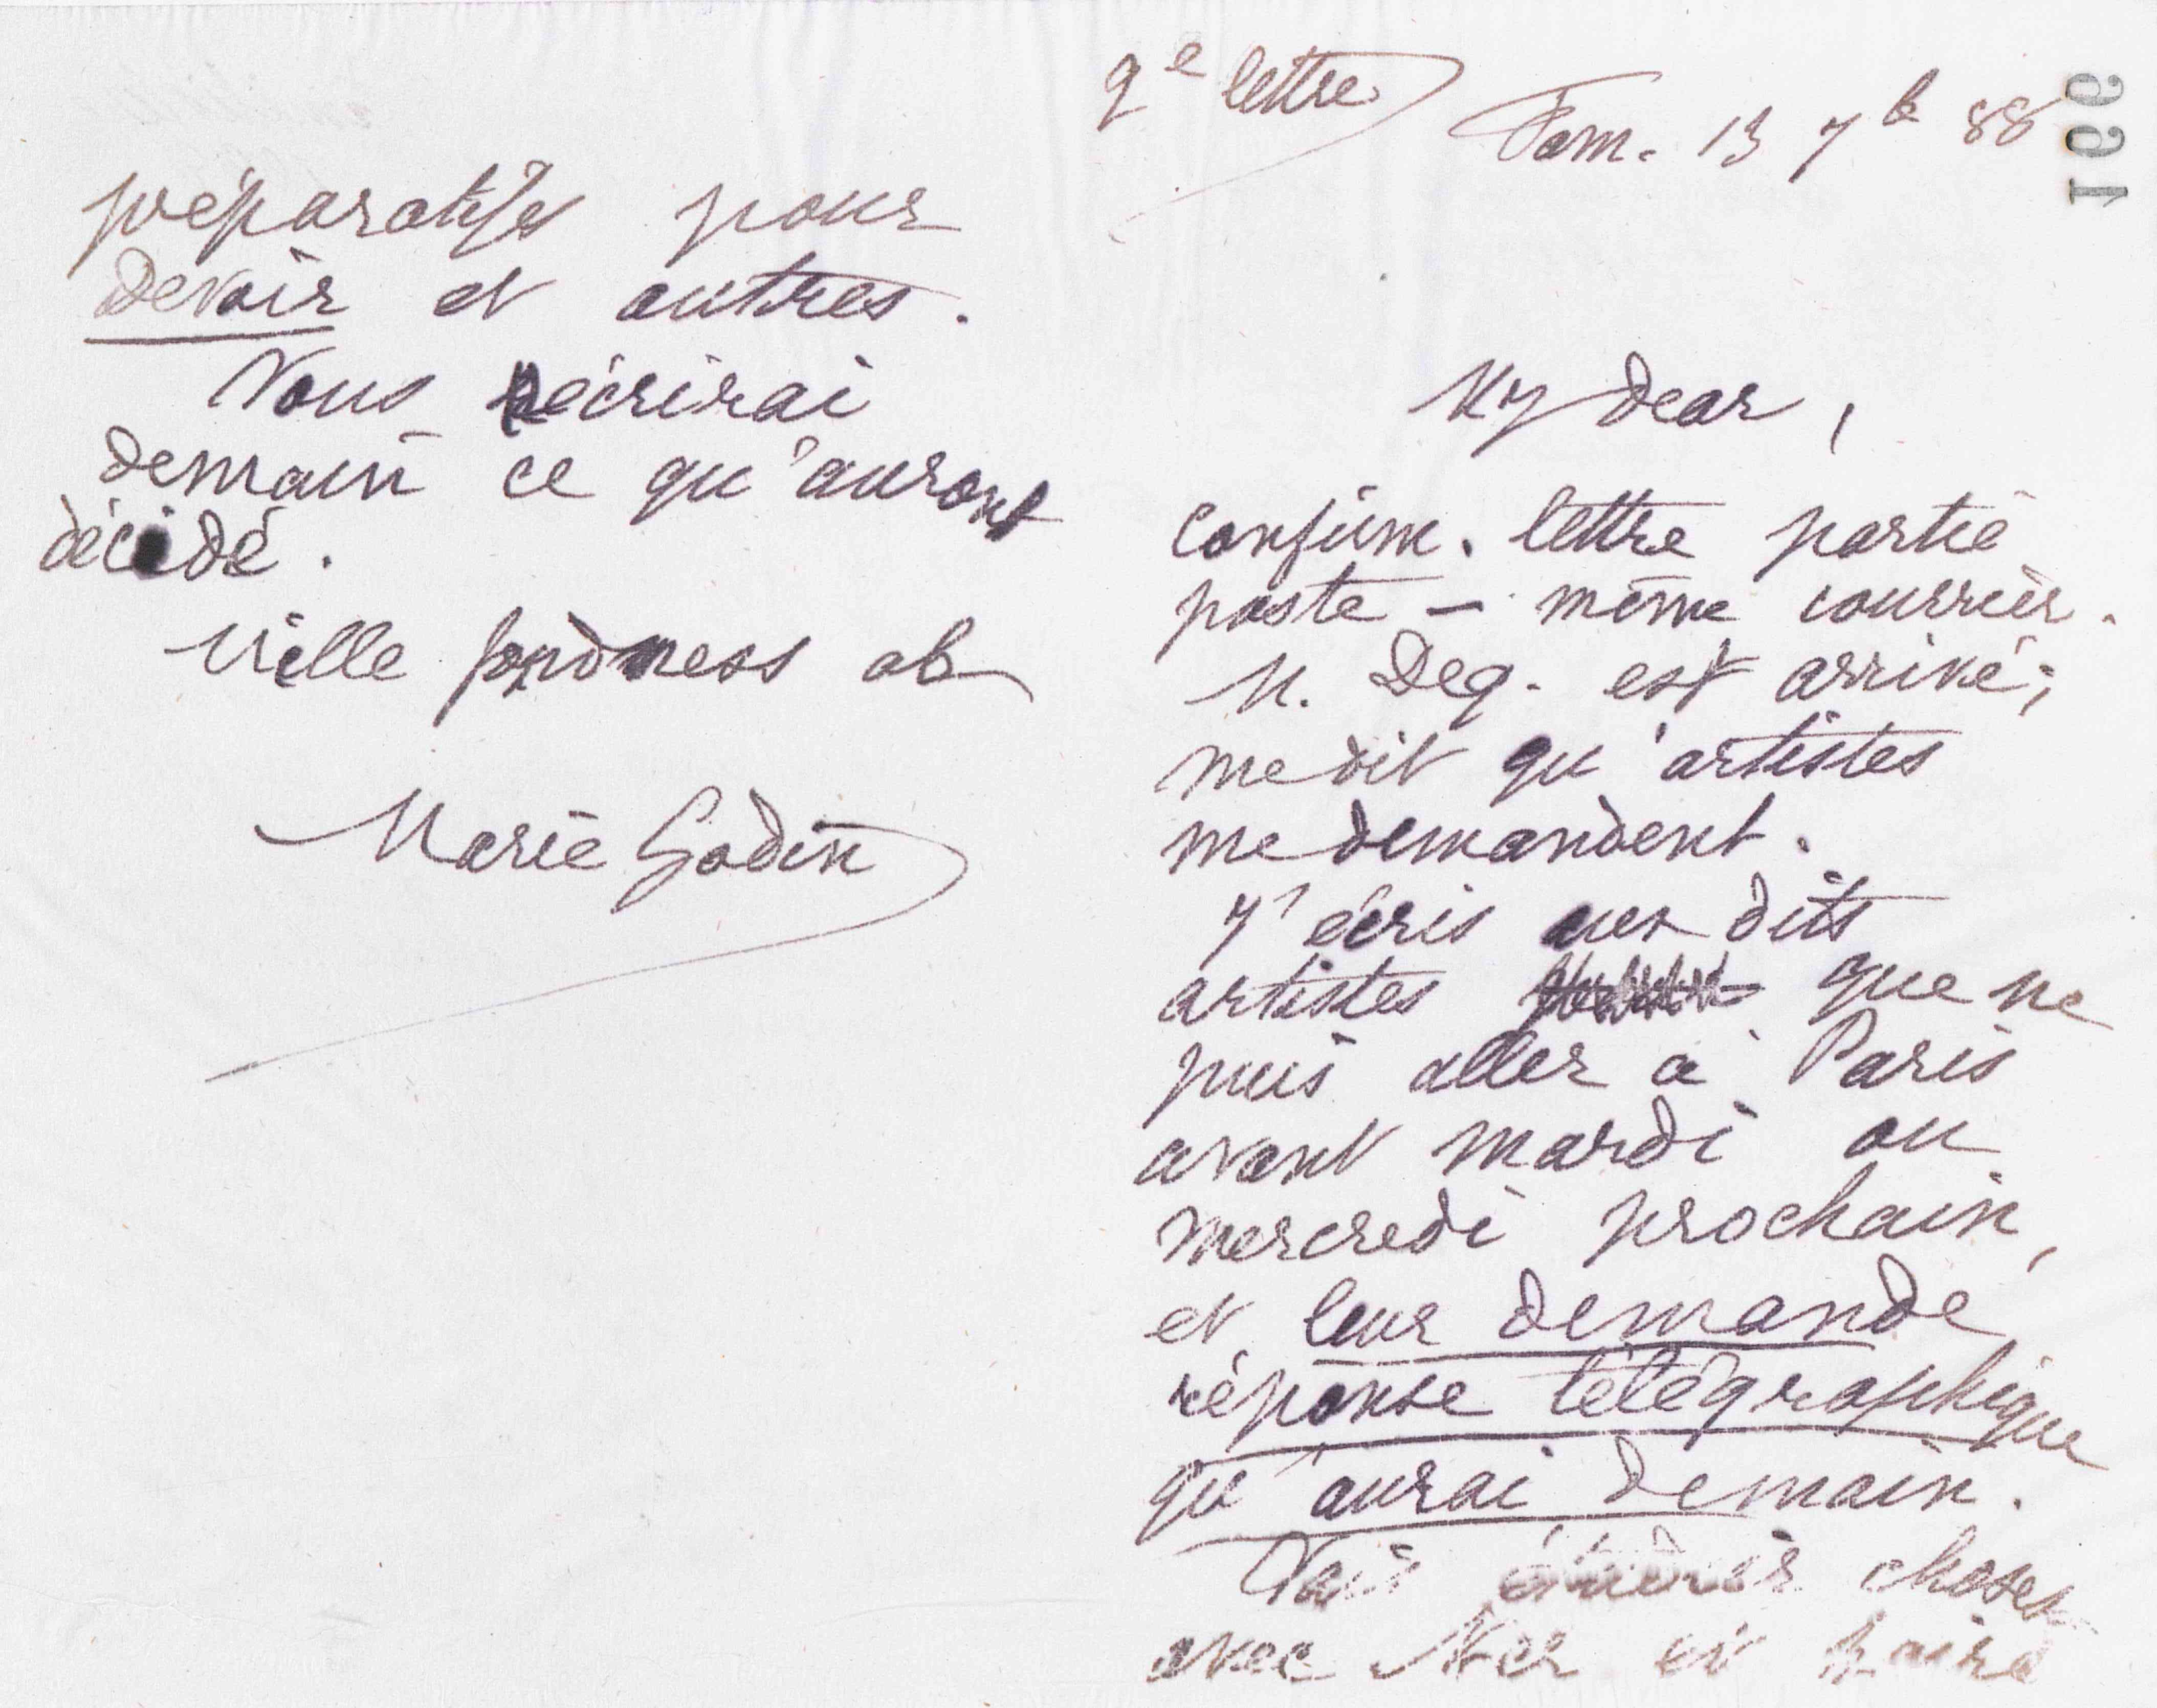 2e lettre
Fam. 13 7b 88
My dear,
confirm. lettre partie
poste — même courrier.
M. Deq. est arrivé;
me dit qu'artistes
me demandent.
J'écris aux dits
artistes que ne
puis aller à Paris
avant mardi ou
mercredi prochain,
et leur demande
réponse télégraphique
qu'aurai demain.
Vais étudier choses
avec et faire
préparatifs pour
devoir et autres.
Vous écrirai
demain ce qu'auront
décidé.
Wille fondness ab
Marie Godin